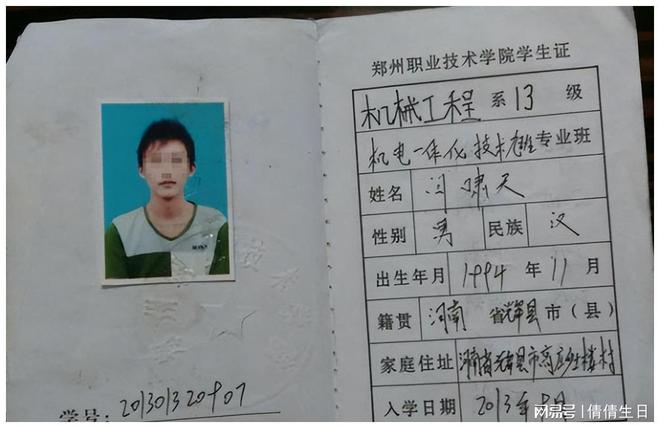 郑州职业技术学院学生证
机械工程系13级
机电一体化技术 专业班
姓名 闫啸天
性别 男 民族 汉
出生年月 1994年11月
籍贯 河南省辉县市(县)
家庭住址 河南省辉县市高庄乡楼村
入学日期 2013年9月
学号: 201301320907
网易号 | 倩倩生日